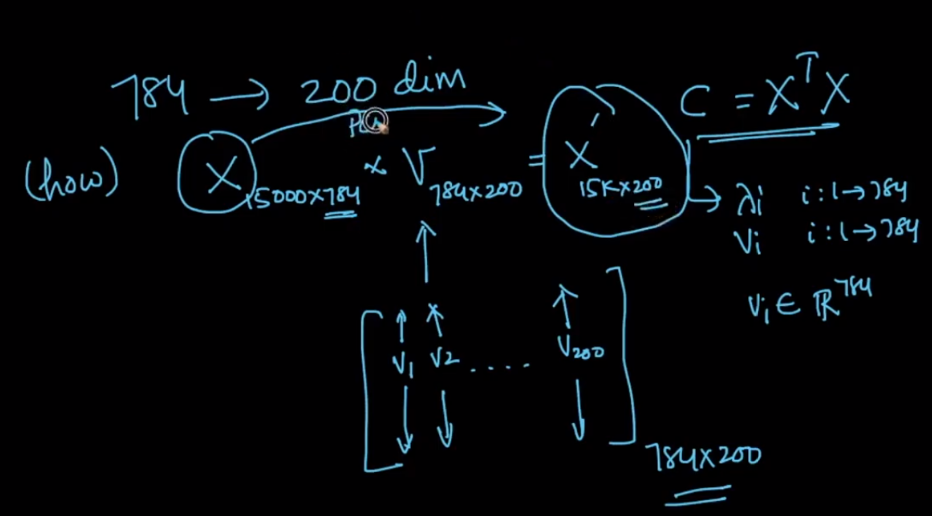 784 → 200 dim
C = XᵀX
PCA
(how) X 15000×784 × V 784×200 = X′ 15K×200
→ λi i:1→784
Vi i:1→784
Vi ∈ ℝ⁷⁸⁴
V1 V2 .... V200
784×200